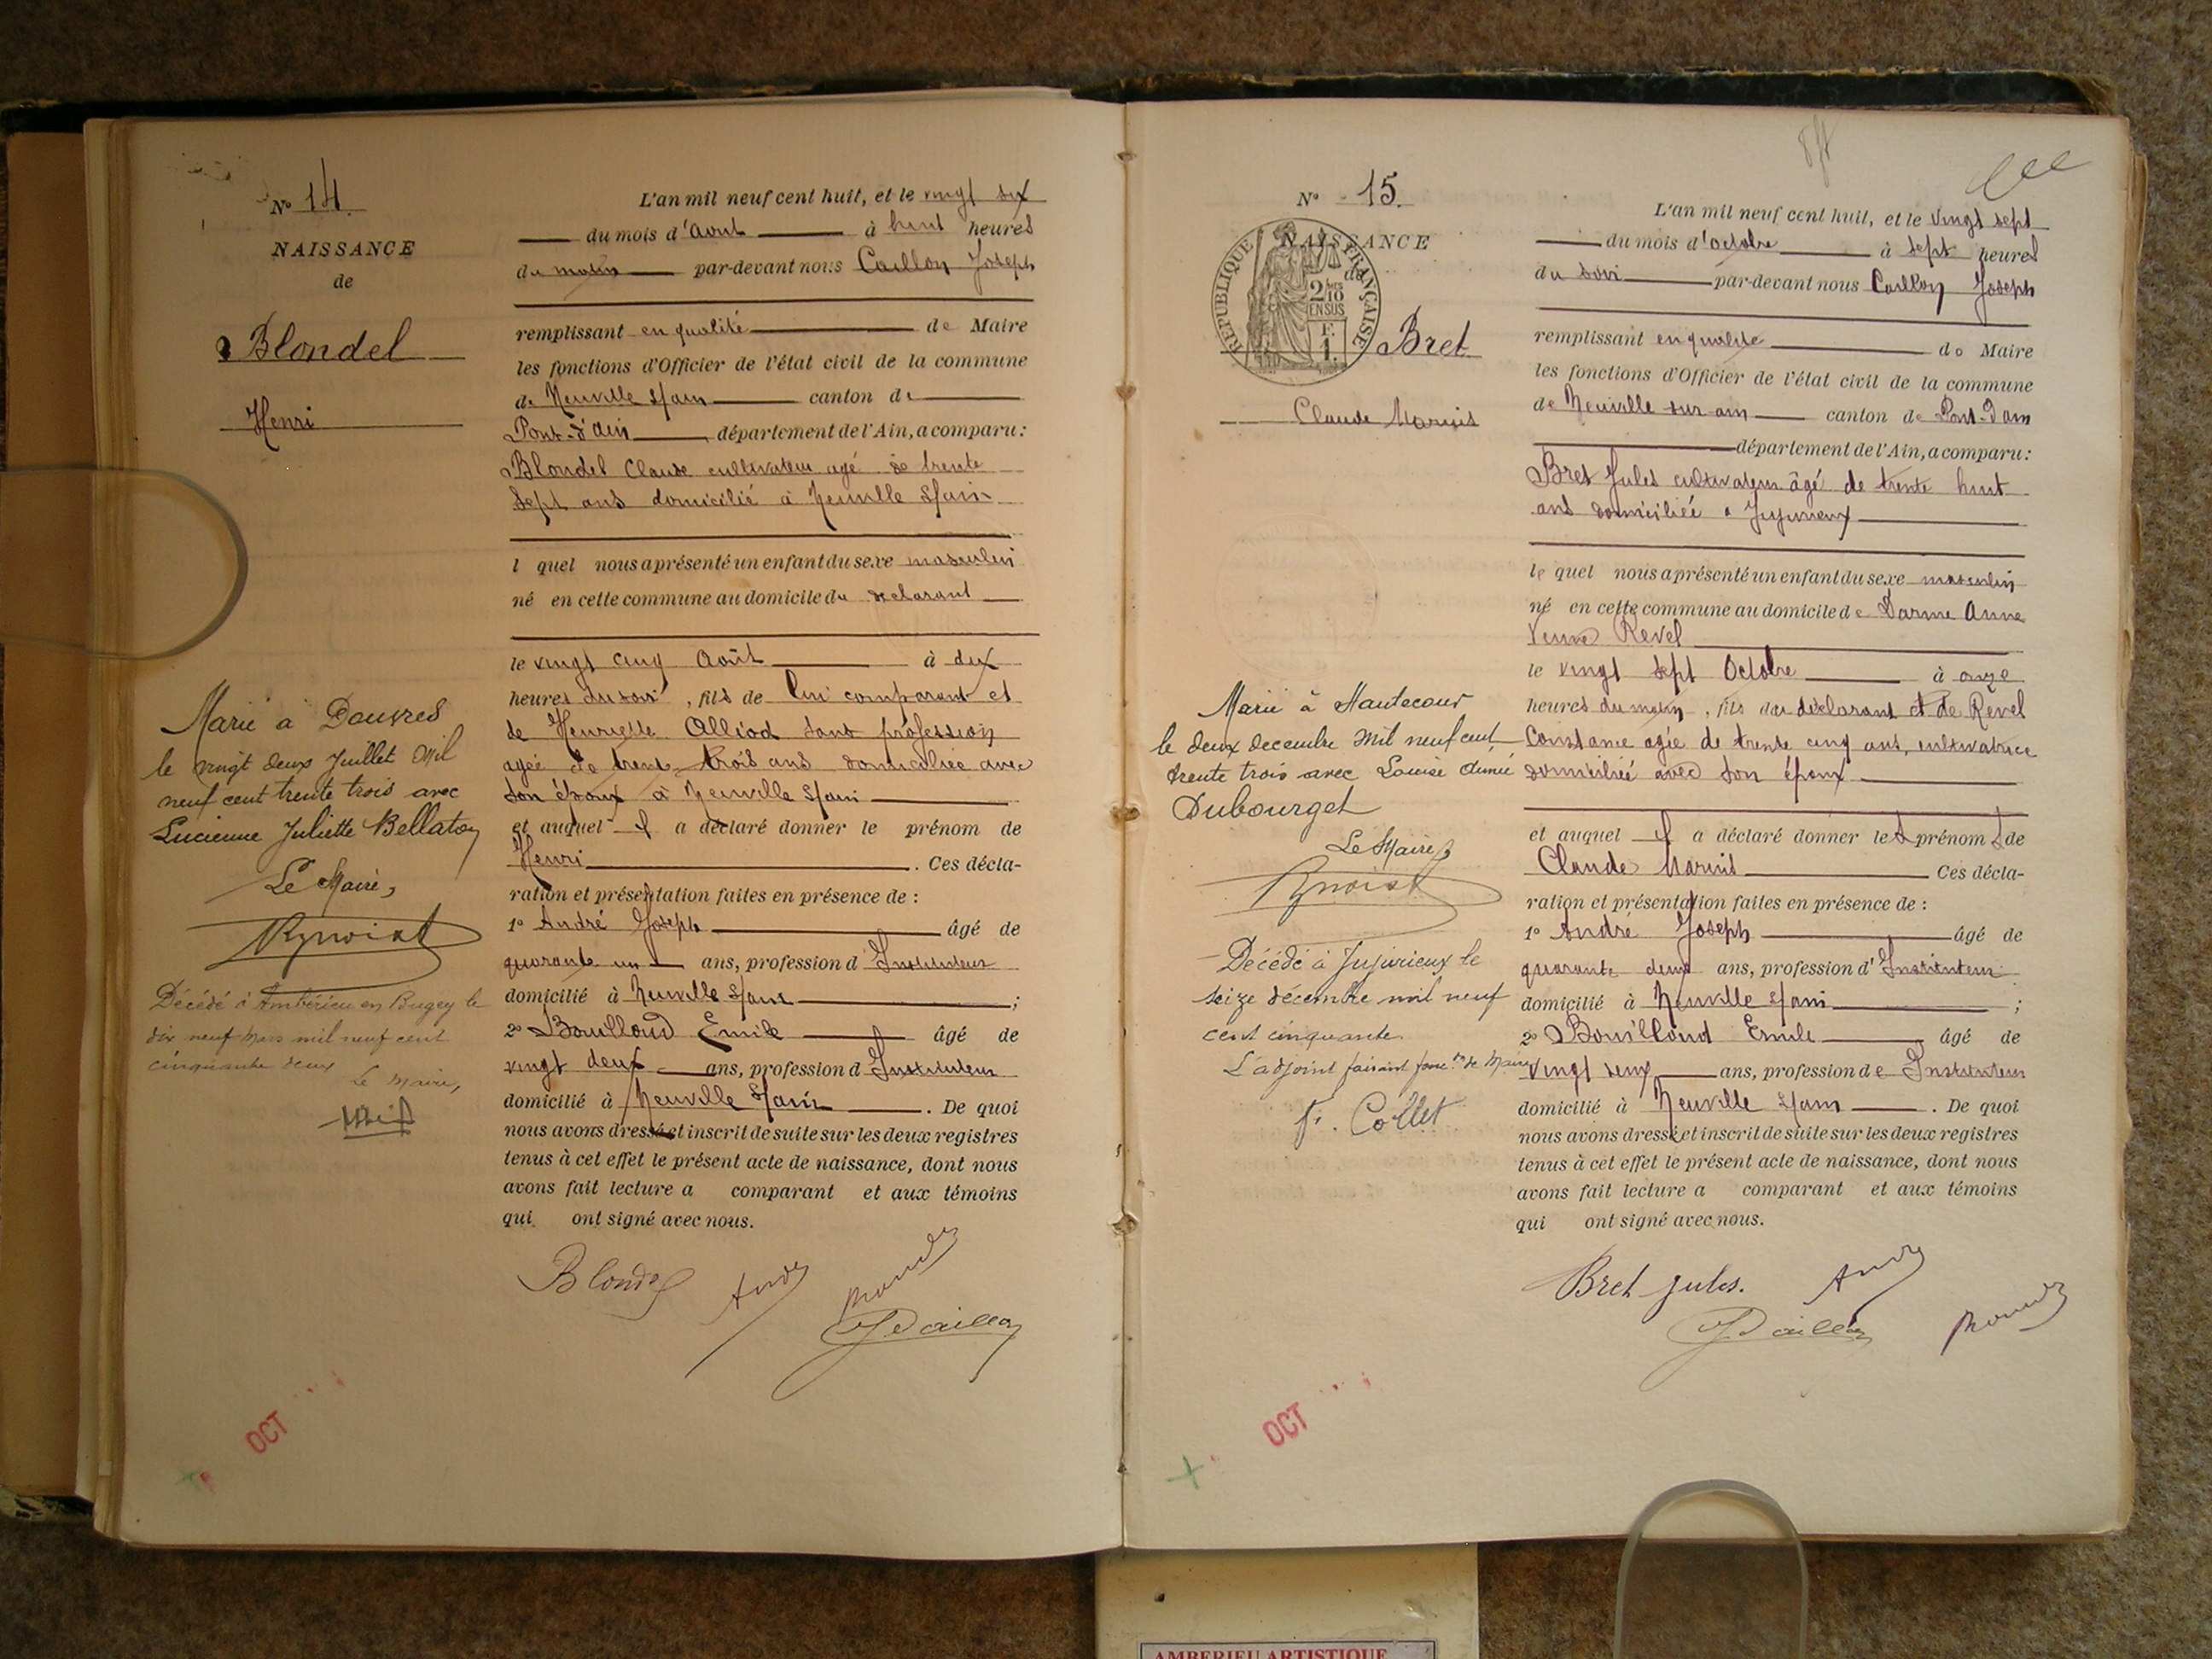 Nº 14.
NAISSANCE
de
Blondel
Henri
L'an mil neuf cent huit, et le vingt six
du mois d'Aout à huit heures
du matin par-devant nous Caillon Joseph
remplissant en qualité de Maire
les fonctions d'Officier de l'état civil de la commune
de Neuville s/ain canton de
Pont-d'Ain, département de l'Ain, a comparu:
Blondel Claude cultivateur agé de trente
sept ans domicilié à Neuville s/ain
l quel nous a présenté un enfant du sexe masculin
né en cette commune au domicile du declarant
le vingt cinq Août à dix
heures du soir, fils de lui comparant et
de Henriette Alliod sans profession
agée de trente trois ans domiciliée avec
son époux à Neuville s/ain
et auquel il a déclaré donner le prénom de
Henri. Ces décla-
ration et présentation faites en présence de :
1º André Joseph âgé de
quarante un ans, profession d'Instituteur
domicilié à Neuville s/ain ;
2º Bouilloud Emile âgé de
vingt deux ans, profession d Instituteur
domicilié à Neuville s/ain. De quoi
nous avons dressé et inscrit de suite sur les deux registres
tenus à cet effet le présent acte de naissance, dont nous
avons fait lecture a comparant et aux témoins
qui ont signé avec nous.
Marié à Douvres
le vingt deux Juillet Mil
neuf cent trente trois avec
Lucienne Juliette Bellaton
Le Maire,
Décédé à Ambérieu en Bugey le
dix neuf Mars mil neuf cent
cinquante deux
Le Maire,
Blondel André J Caillon
OCT
Nº 15.
NAISSANCE
de
RÉPUBLIQUE FRANÇAISE
2/10 EN SUS
F. 1.
Bret
Claude Marius
L'an mil neuf cent huit, et le vingt sept
du mois d'octobre à sept heures
du soir par-devant nous Caillon Joseph
remplissant en qualité de Maire
les fonctions d'Officier de l'état civil de la commune
de Neuville sur ain canton de Pont-d'ain
département de l'Ain, a comparu:
Bret Jules cultivateur âgé de trente huit
ans domicilié à Jujurieux
le quel nous a présenté un enfant du sexe masculin
né en cette commune au domicile de Darme Anne
Veuve Revel
le vingt sept Octobre à onze
heures du matin, fils du déclarant et de Revel
Constance agée de trente cinq ans, cultivatrice
domiciliée avec son époux
et auquel il a déclaré donner les prénoms de
Claude Marius Ces décla-
ration et présentation faites en présence de :
1º André Joseph âgé de
quarante deux ans, profession d'Instituteur
domicilié à Neuville s/ain ;
2º Bouilloud Emile âgé de
vingt deux ans, profession de Instituteur
domicilié à Neuville s/ain. De quoi
nous avons dressé et inscrit de suite sur les deux registres
tenus à cet effet le présent acte de naissance, dont nous
avons fait lecture a comparant et aux témoins
qui ont signé avec nous.
Marié à Hautecour
le deux decembre Mil neuf cent
trente trois avec Louise Aimée
Dubourget
Le Maire,
Décédé à Jujurieux le
seize décembre mil neuf
cent cinquante
L'adjoint faisant fonc.on de Maire
F. Collet
Bret Jules. André
J Caillon
OCT
AMBERIEU ARTISTIQUE